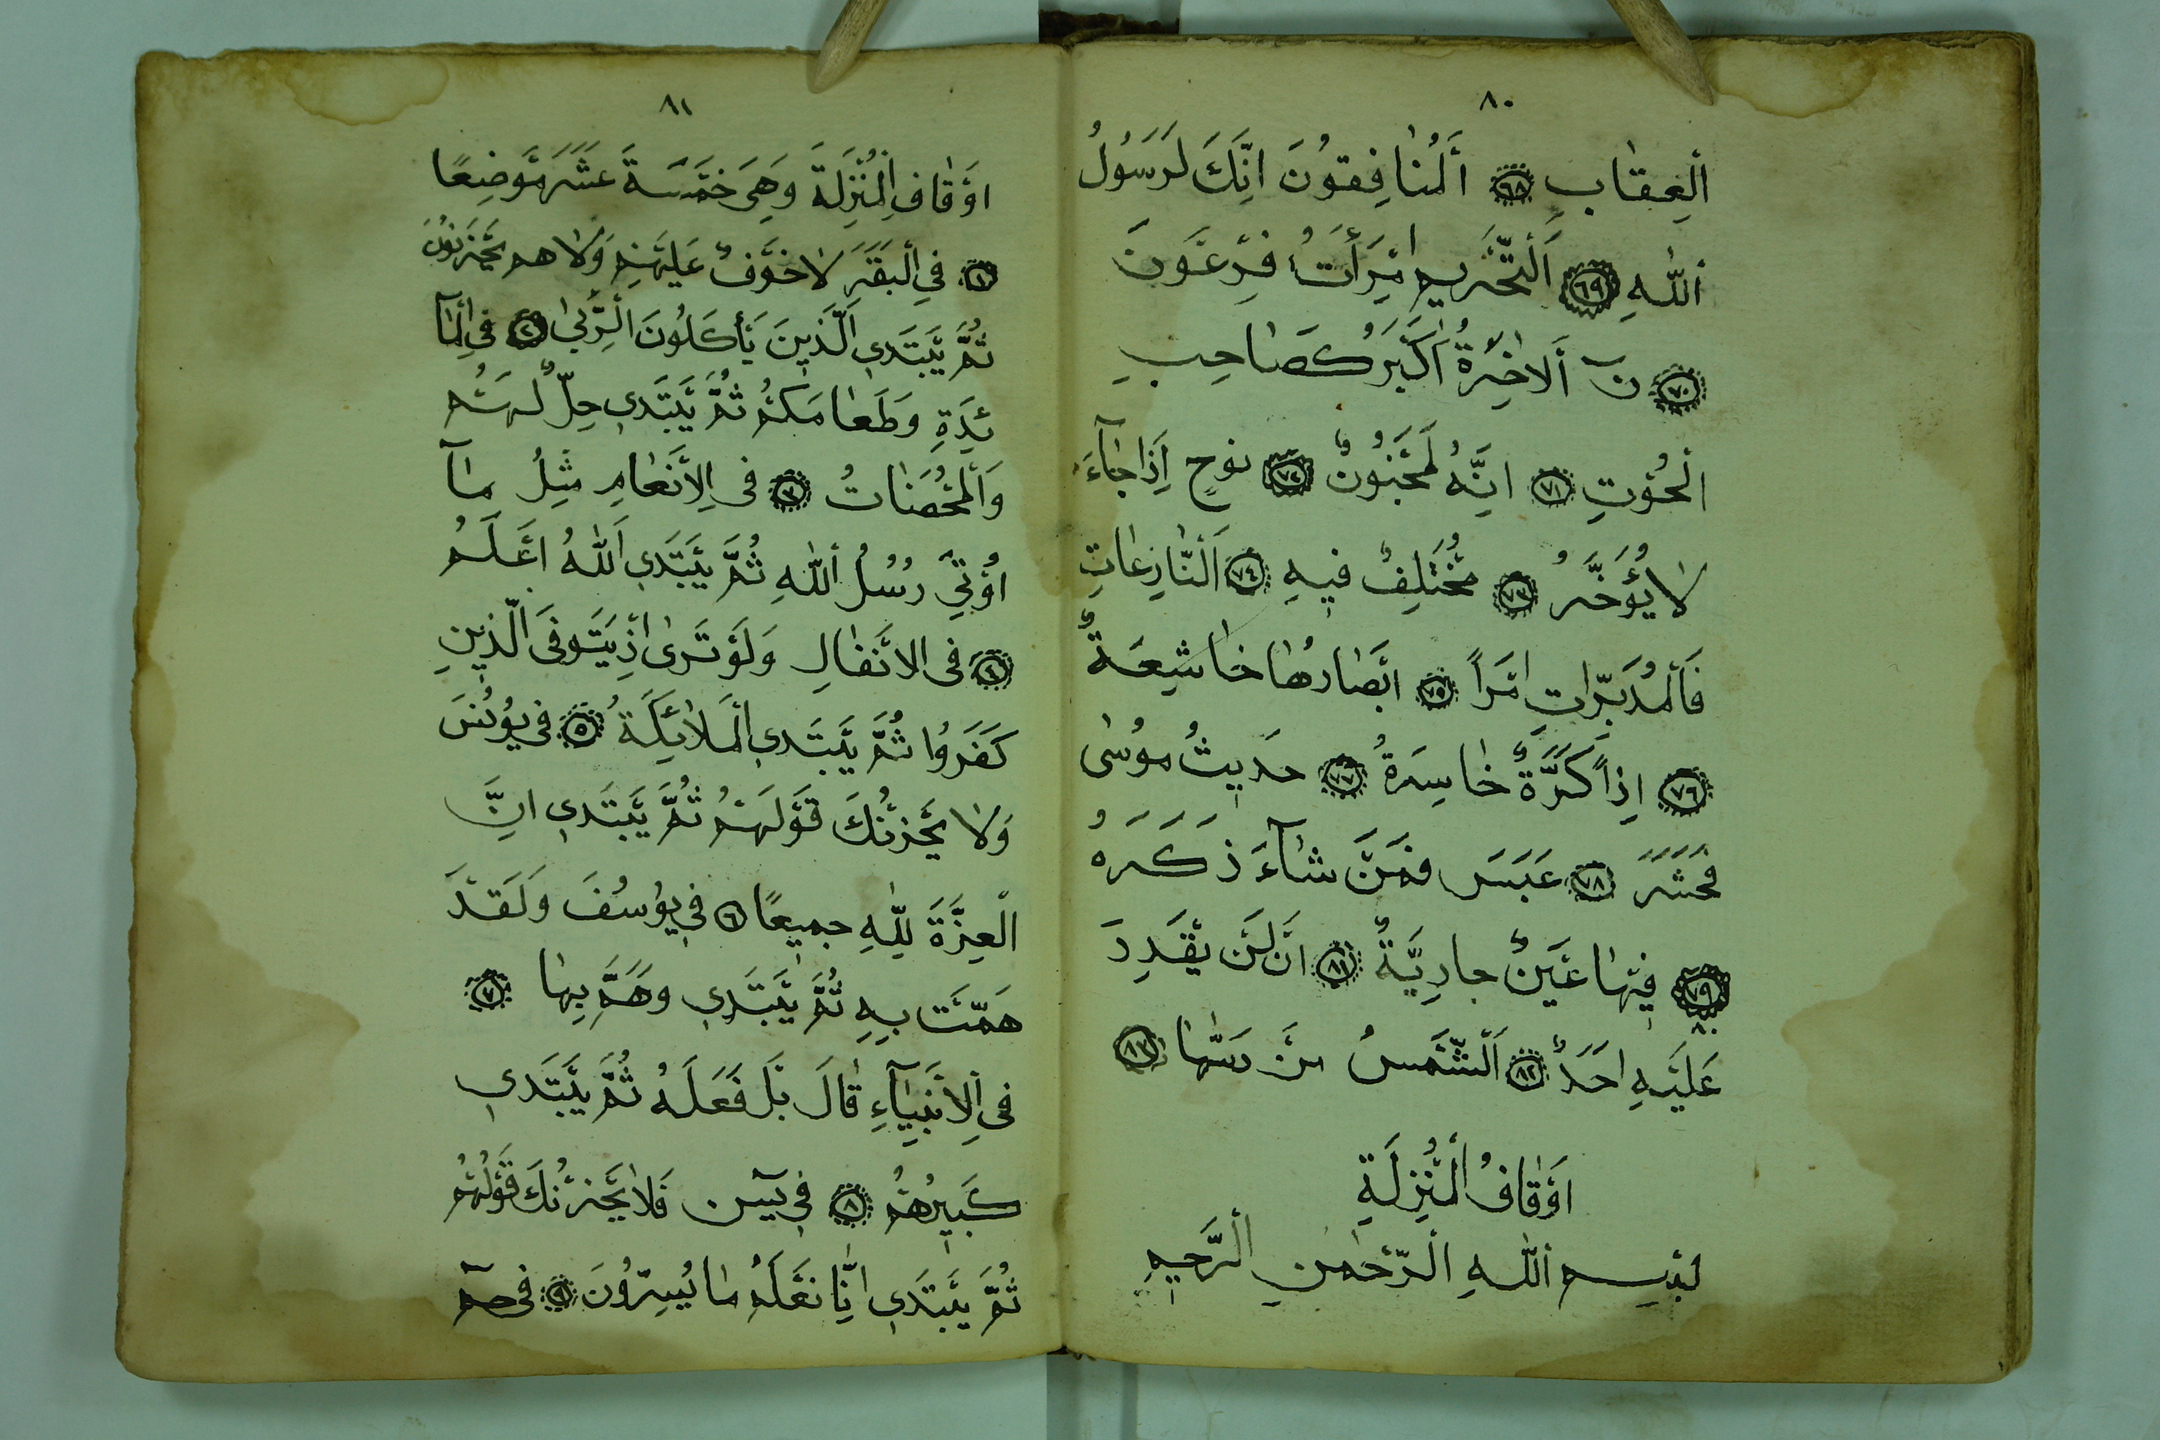 ٨٠
ألعِقَابِ ٦٨ أَلْمُنَافِقُونَ انَّكَ لَرَسُولُ
أللّٰهِ ٦٩ أَلتَّحْرِيمِ امْرَأَتَ فِرْعَوْنَ
٧٠ نۤ أَلاخِرَةُ أَكْبَرُ كَصَاحِبِ
الْحُوْتِ ٧١ انَّهُ لَمَجْنُونٌ ٧٢ نوحٍ إِذَا جَآءَ
لَا يُؤَخَّرُ ٧٣ مُخْتَلِفٌ فِيهِ ٧٤ أَلنَّازِعَاتِ
فَألْمُدَبِّرَاتِ امْرَاً ٧٥ ابْصَارُهَا خَاشِعَةٌ
٧٦ اِذاً كَرَّةٌ خَاسِرَةُ ٧٧ حَدِيثُ مُوسٰى
فَحَشَرَ ٧٨ عَبَسَ فَمَنْ شَآءَ ذَكَرَهُ
٧٩ فِيْهَا عَيْنٌ جارِيَةٌ ٨١ انْ لَنْ يَقْدِرَ
٨٠
عَلَيْهِ احَدٌ ٨٢ أَلشَّمْسُ مَنْ دَسّٰهَا ٨٣
اوْقَافُ الْمُنْزِلَةِ
بِسْمِ أللّٰهِ ألرَّحْمٰنِ ألرَّحِيمِ
٨١
اوْقَاف الْمُنْزِلَةَ وَهِيَ خَمْسَةَ عَشَرَ مَوْضِعًا
١ فِي ألبَقَرَ لَا خَوْفٌ عَلَيْهِمْ وَلَا هم يَحْزَنُونَ
ثُمَّ يَبْتَدِي أَلَّذِينَ يَأْكُلُونَ ألرِّبٰى ٢ فِي المَآ
ئِدَةِ وَطَعَامُكُمْ ثُمَّ يَبْتَدِي حِلٌّ لَهُمْ
وَألْمُحْصَنَاتُ ٣ فى الِأنْعَامِ مِثْلُ مَآ
اوْتِيَ رُسُلُ أللّٰهِ ثُمَّ يَبْتَدِي أَللّٰهُ اعْلَمُ
٤ فى الانْفَالِ وَلَوْ تَرٰى اذْ يَتَوَفَى الَّذِينِ
كَفَرُوا ثُمَّ يَبْتَدِي ألْمَلَائِكَةُ ٥ فِي يُونُسَ
وَلَا يَحْزُنْكَ قَوْلَهُمْ ثُمَّ يَبْتَدِي انَّ
الْعِزَّةَ لِلّٰهِ جمِيعًا ٦ فِي يُوسُفَ وَلَقَدْ
هَمَّتْ بِهِ ثُمَّ يَبْتَدِي وهَمَّ بِهَا ٧
فى ألِانْبِيَآءِ قَالَ بَلْ فَعَلَهُ ثُمَّ يَبْتَدِي
كَبِيرُهُمْ ٨ فِي يسۤ فَلَا يَحْزُنْكَ قَوْلُهُمْ
ثُمَّ يَبْتَدِي انَّا نَعْلَمُ مَا يُسِرُّونَ ٩ فى حمۤ